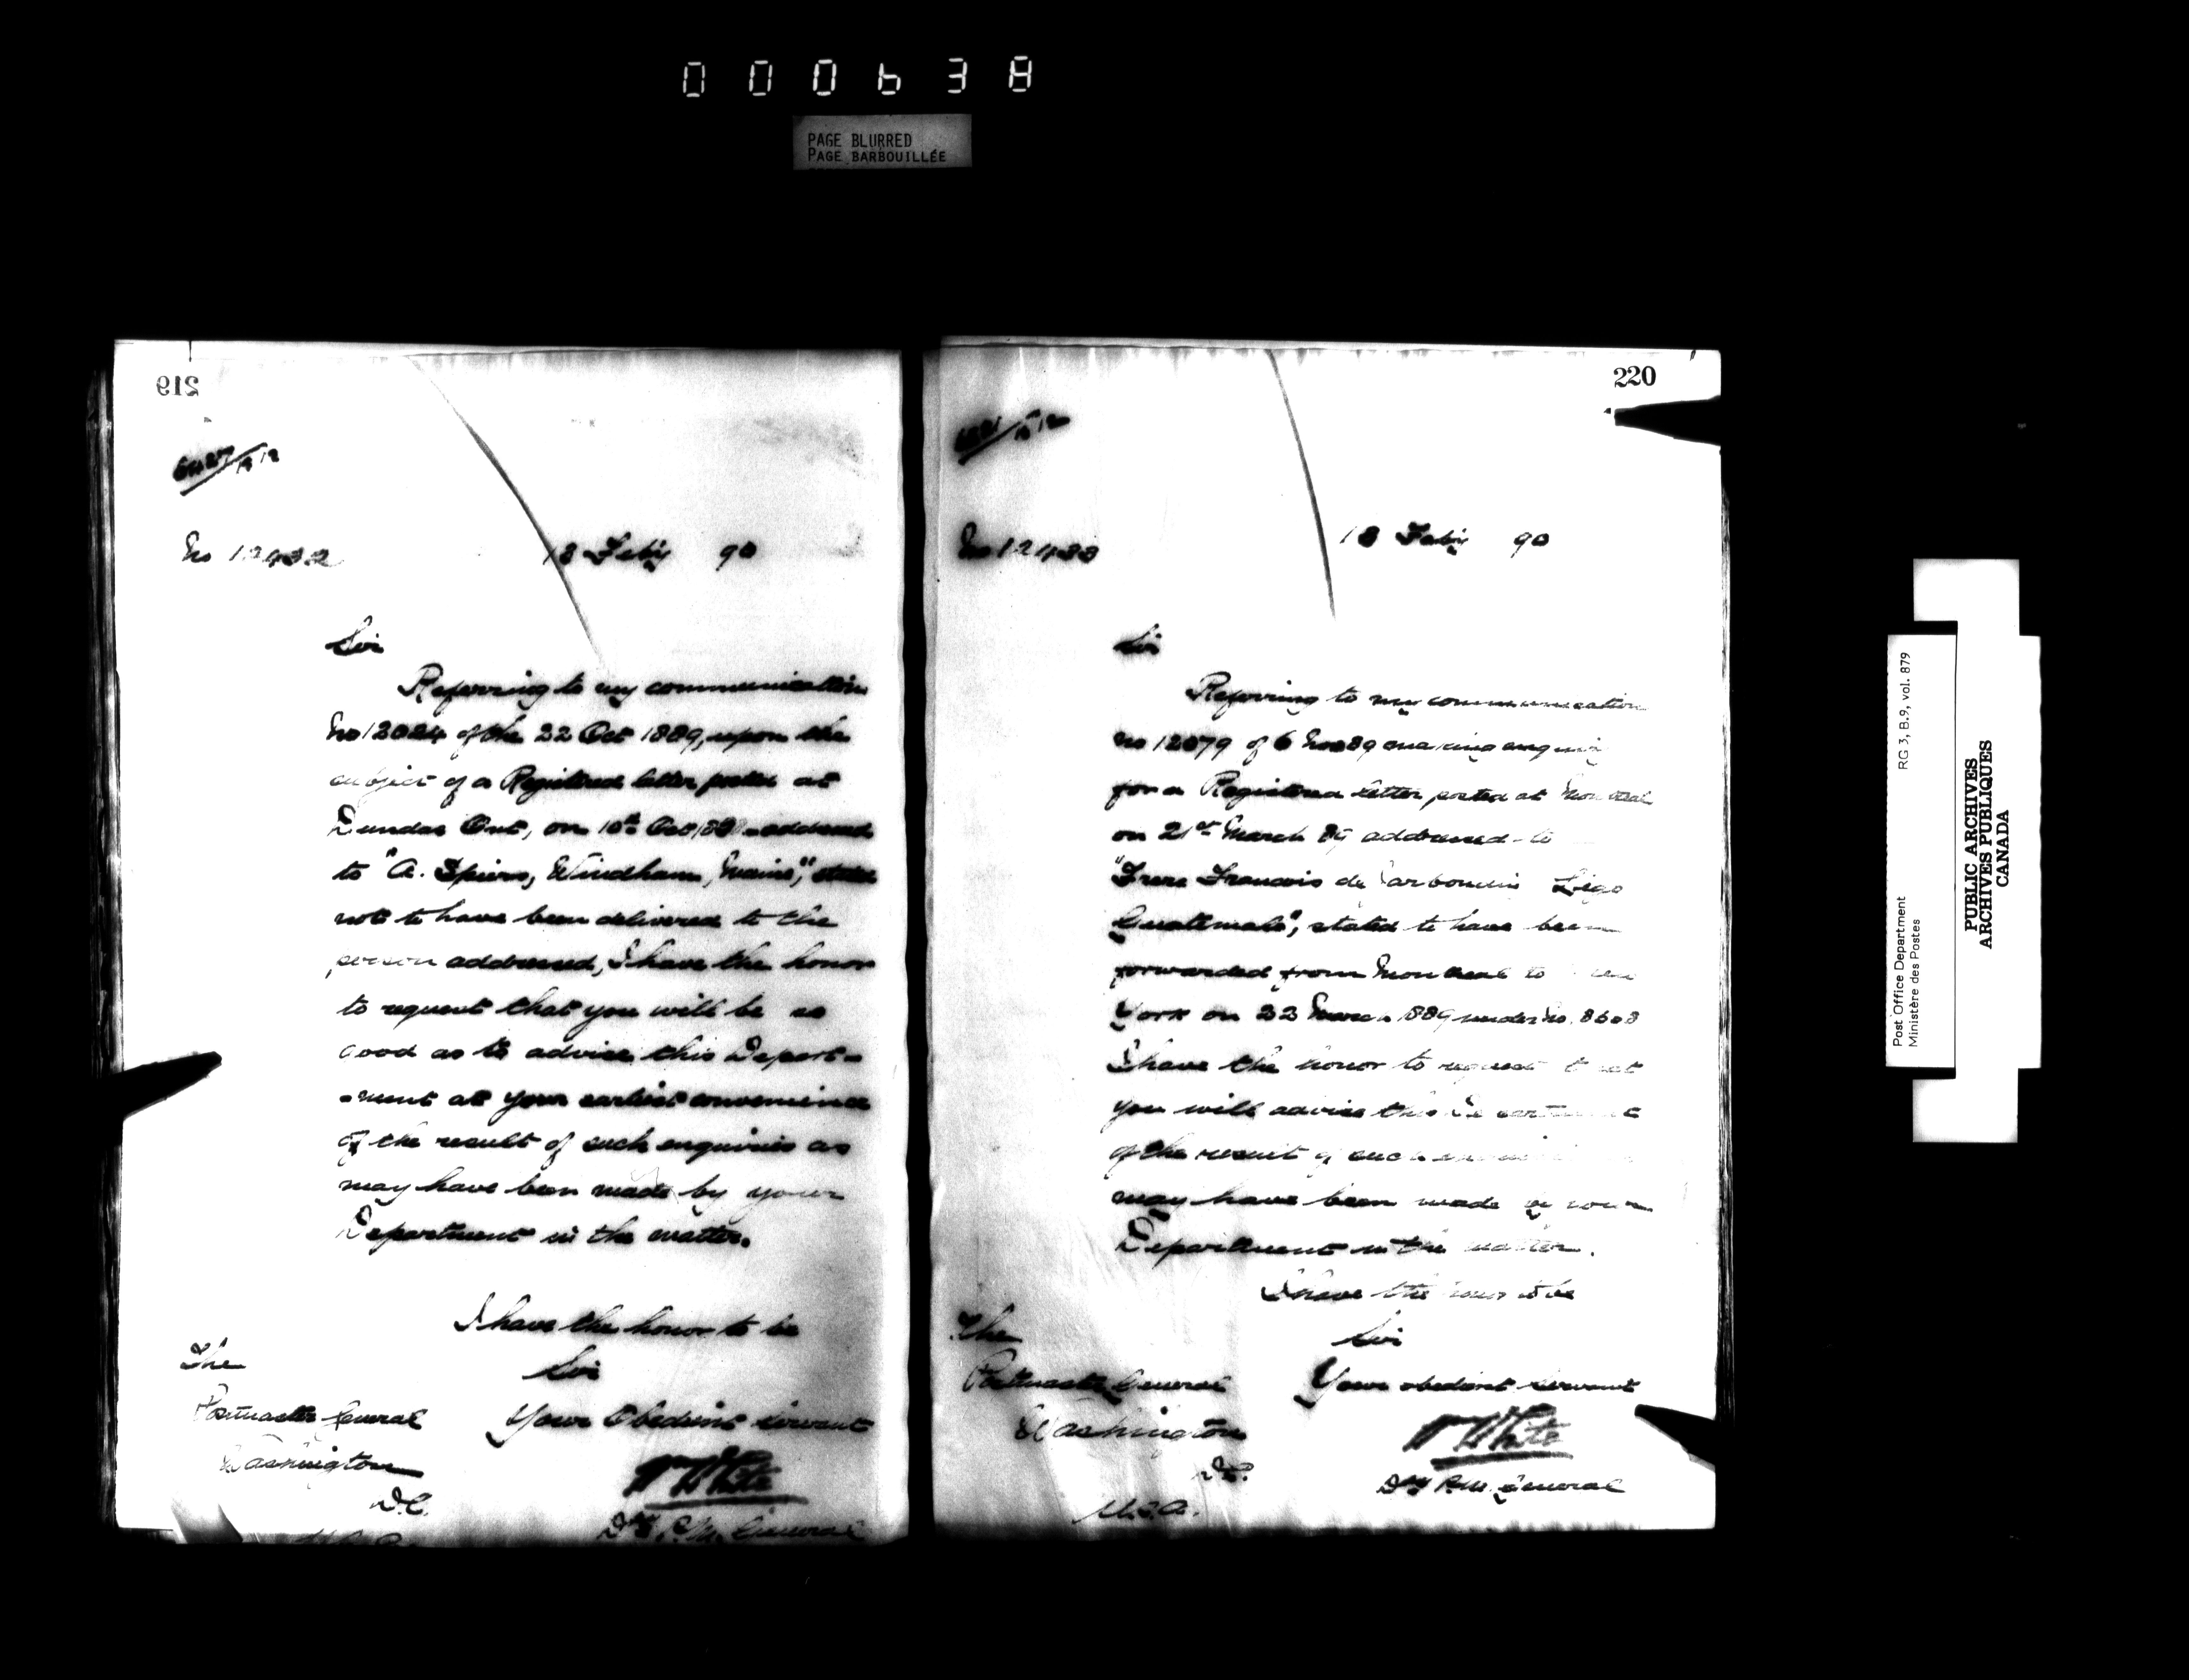 000638
PAGE BLURRED
PAGE BARBOUILLÉE
219
No 12432
18 Feby 90
Sir
Referring to my communication
No 12024 of the 22 Oct 1889, upon the
subject of a Registered letter posted at
Dundas Ont, on 10th Oct 188 addressed
to "A. Spiers, Windham, Maine," stated
not to have been delivered to the
person addressed, I have the honor
to request that you will be so
good as to advise this Depart-
-ment at your earliest convenience
of the result of such enquiries as
may have been made by your
Department in the matter.
I have the honor to be
Sir
Your Obedient Servant
W White
Dy. P.M. General
The
Postmaster General
Washington
D.C.
220
No 12433
18 Feby 90
Sir
Referring to my communication
no 12079 of 6 Nov 89 making enquiry
for a Registered letter posted at Montreal
on 21st March 89 addressed to
"Frere Francois de
Guatemala", stated to have been
forwarded from Montreal to New
York on 22 March 1889 under No.
I have the honor to request that
you will advise this Department
of the result of such enquiries
may have been made by your
Department in the matter.
I have the honor to be
Sir
Your obedient servant
W White
Dy P.M. General
The
Postmaster General
Washington
D.C.
U.S.A.
Post Office Department
Ministère des Postes
RG 3, B.9, vol. 879
PUBLIC ARCHIVES
ARCHIVES PUBLIQUES
CANADA